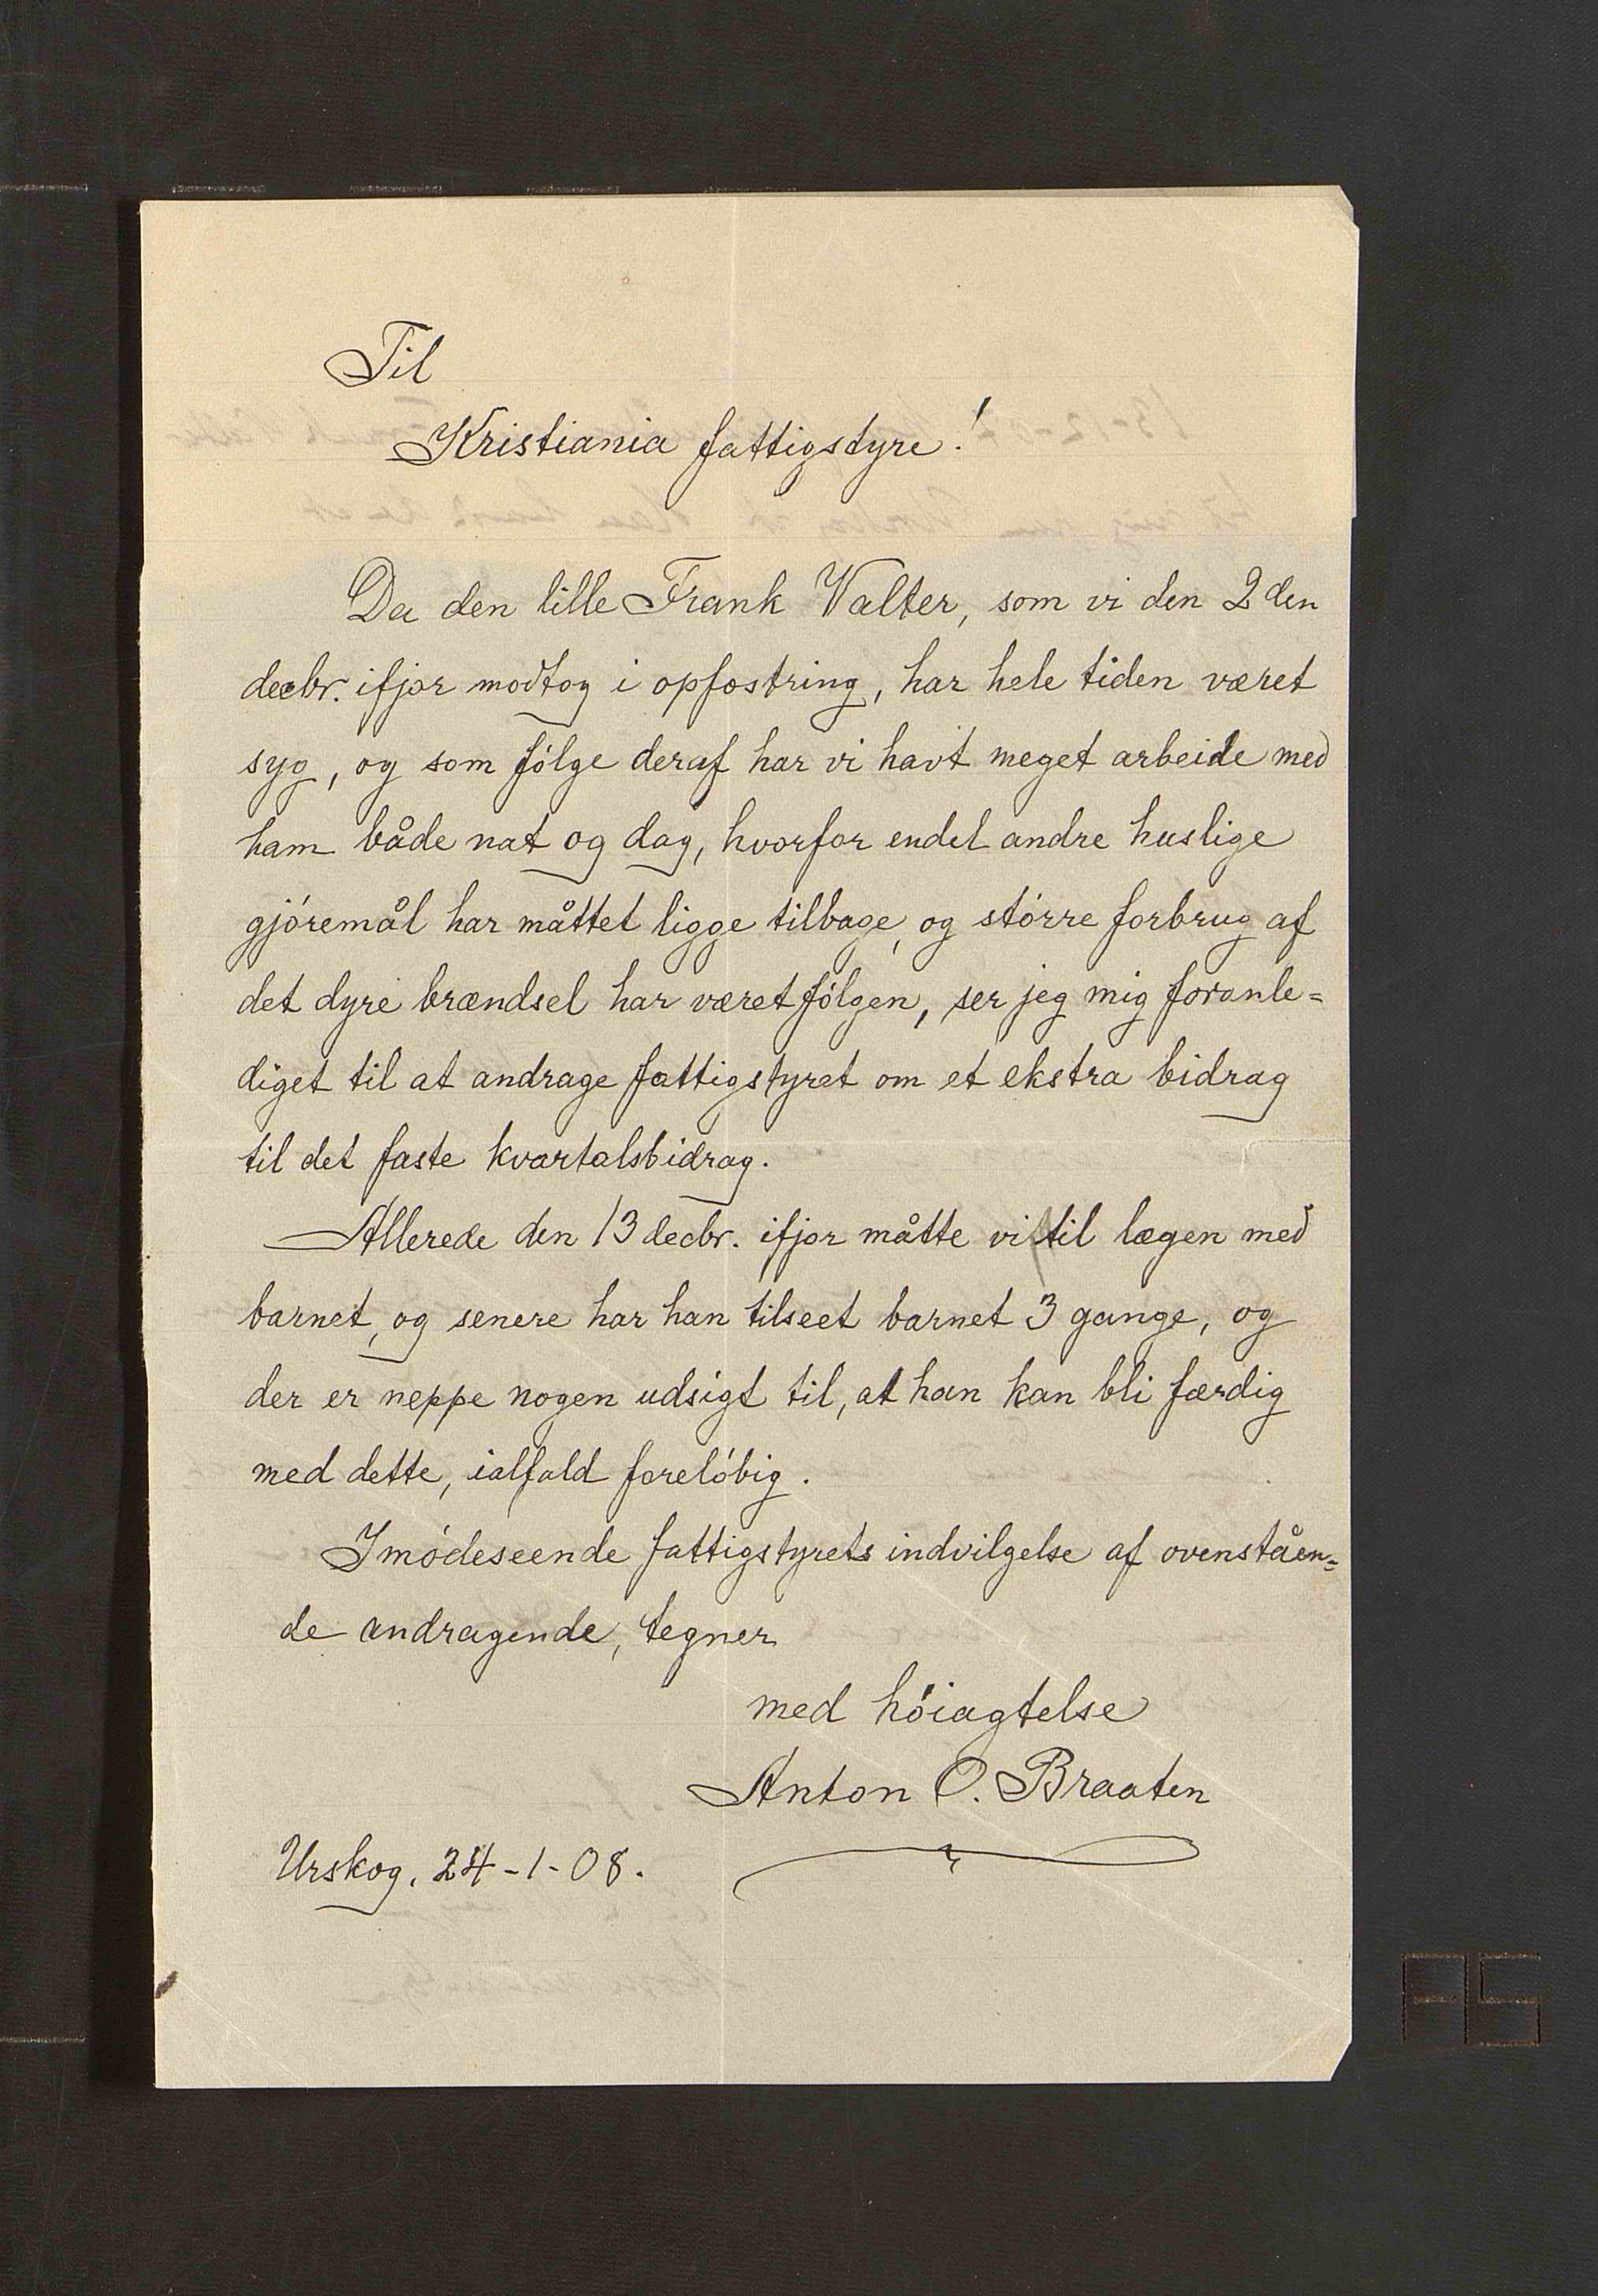 Til
Kristiania fattigstyre!
Da den lille Frank Walter, som vi den 2den
decbr. ifjor modtog i opfostring, har hele tiden været
syg, og som følge deraf har vi havt meget arbeide med
ham både nat og dag, hvorfor endel andre huslige
gjøremål har måttet ligge tilbage, og større forbrug af
det dyre brændsel har været følgen, ser jeg mig foranle=
diget til at andrage fattigstyret om et ekstra bidrag
til det faste kvartalsbidrag.
Allerede den 13 decbr. ifjor måtte vi til lægen med
barnet, og senere har han tilseet barnet 3 gange, og
der er neppe nogen udsigt til, at han kan bli færdig
med dette, ialfald foreløbig.
Imødeseende fattigstyrets indvilgelse af ovenståen=
de andragende, tegner
med høiagtelse
Anton O. Braaten
Urskog, 24-1-08.